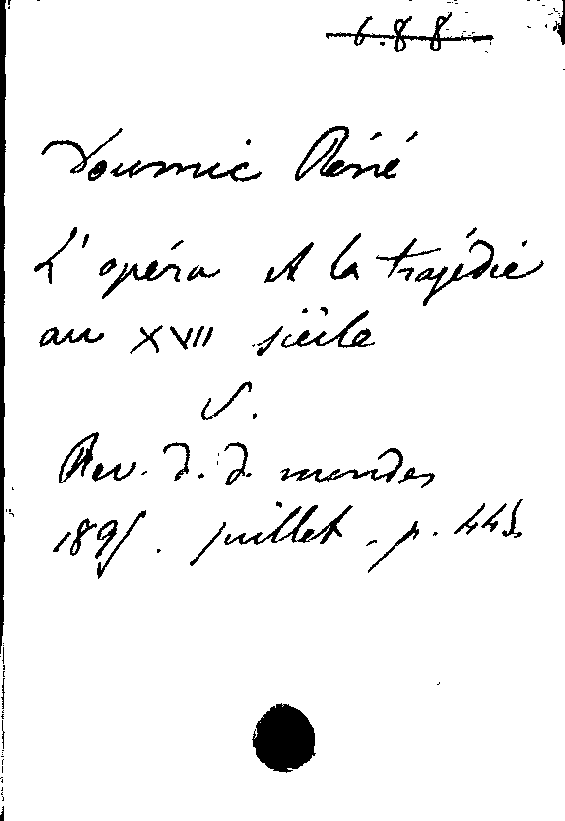 6.88
Doumic René
L'opéra et la tragédie
au XVII siècle
V.
Rev. d. d. mondes
1895. juillet. p. 445